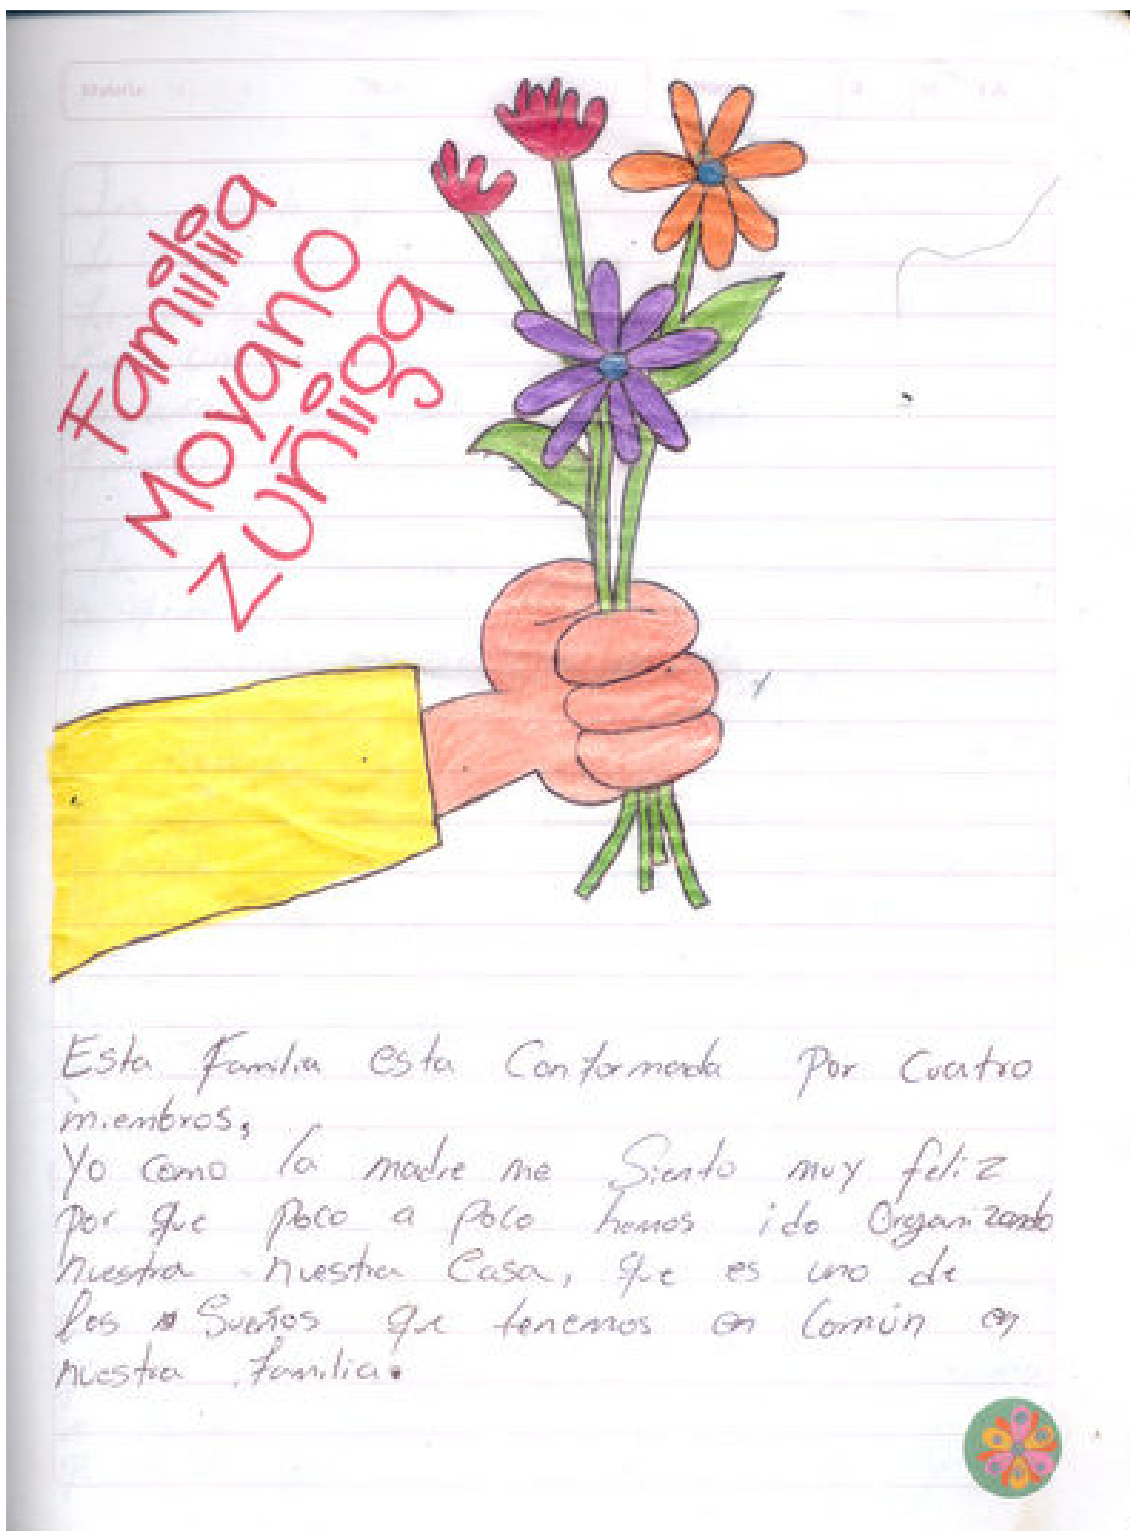 Familia
Moyano
Zuñiga
Esta Familia esta Conformada Por Cuatro
miembros,
Yo como la madre me Siento muy feliz
por que poco a poco hemos ido Organizando
nuestra nuestra Casa, que es uno de
los Sueños que tenemos en Común en
nuestra familia.